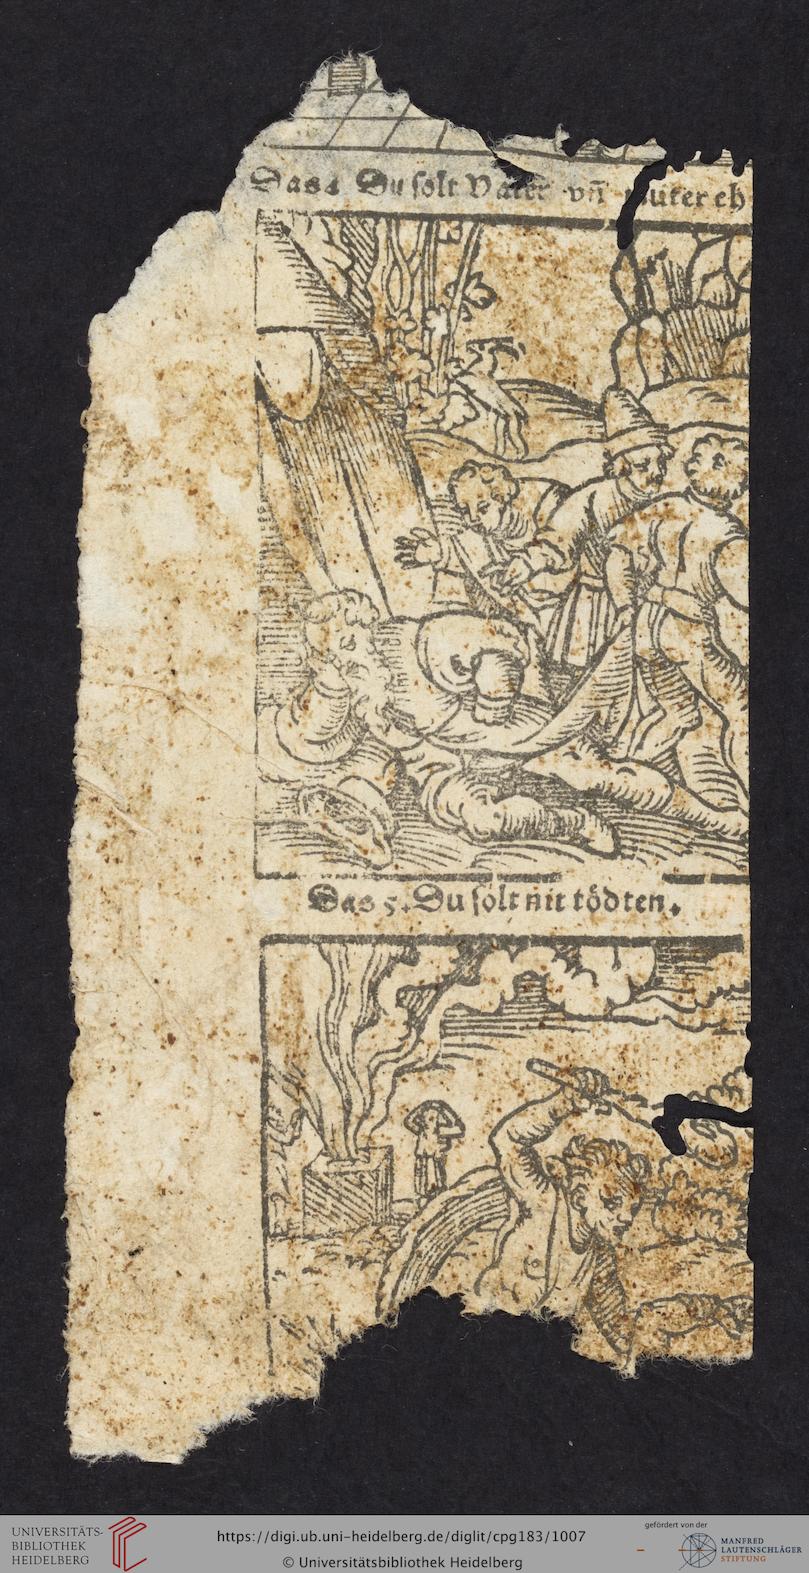 Das 4 Du solt Vater vñ muter eh
Das 5. Du solt nit tödten.
UNIVERSITÄTS-
BIBLIOTHEK
HEIDELBERG
https://digi.ub.uni-heidelberg.de/diglit/cpg183/1007
© Universitätsbibliothek Heidelberg
gefördert von der
MANFRED
LAUTENSCHLÄGER
STIFTUNG